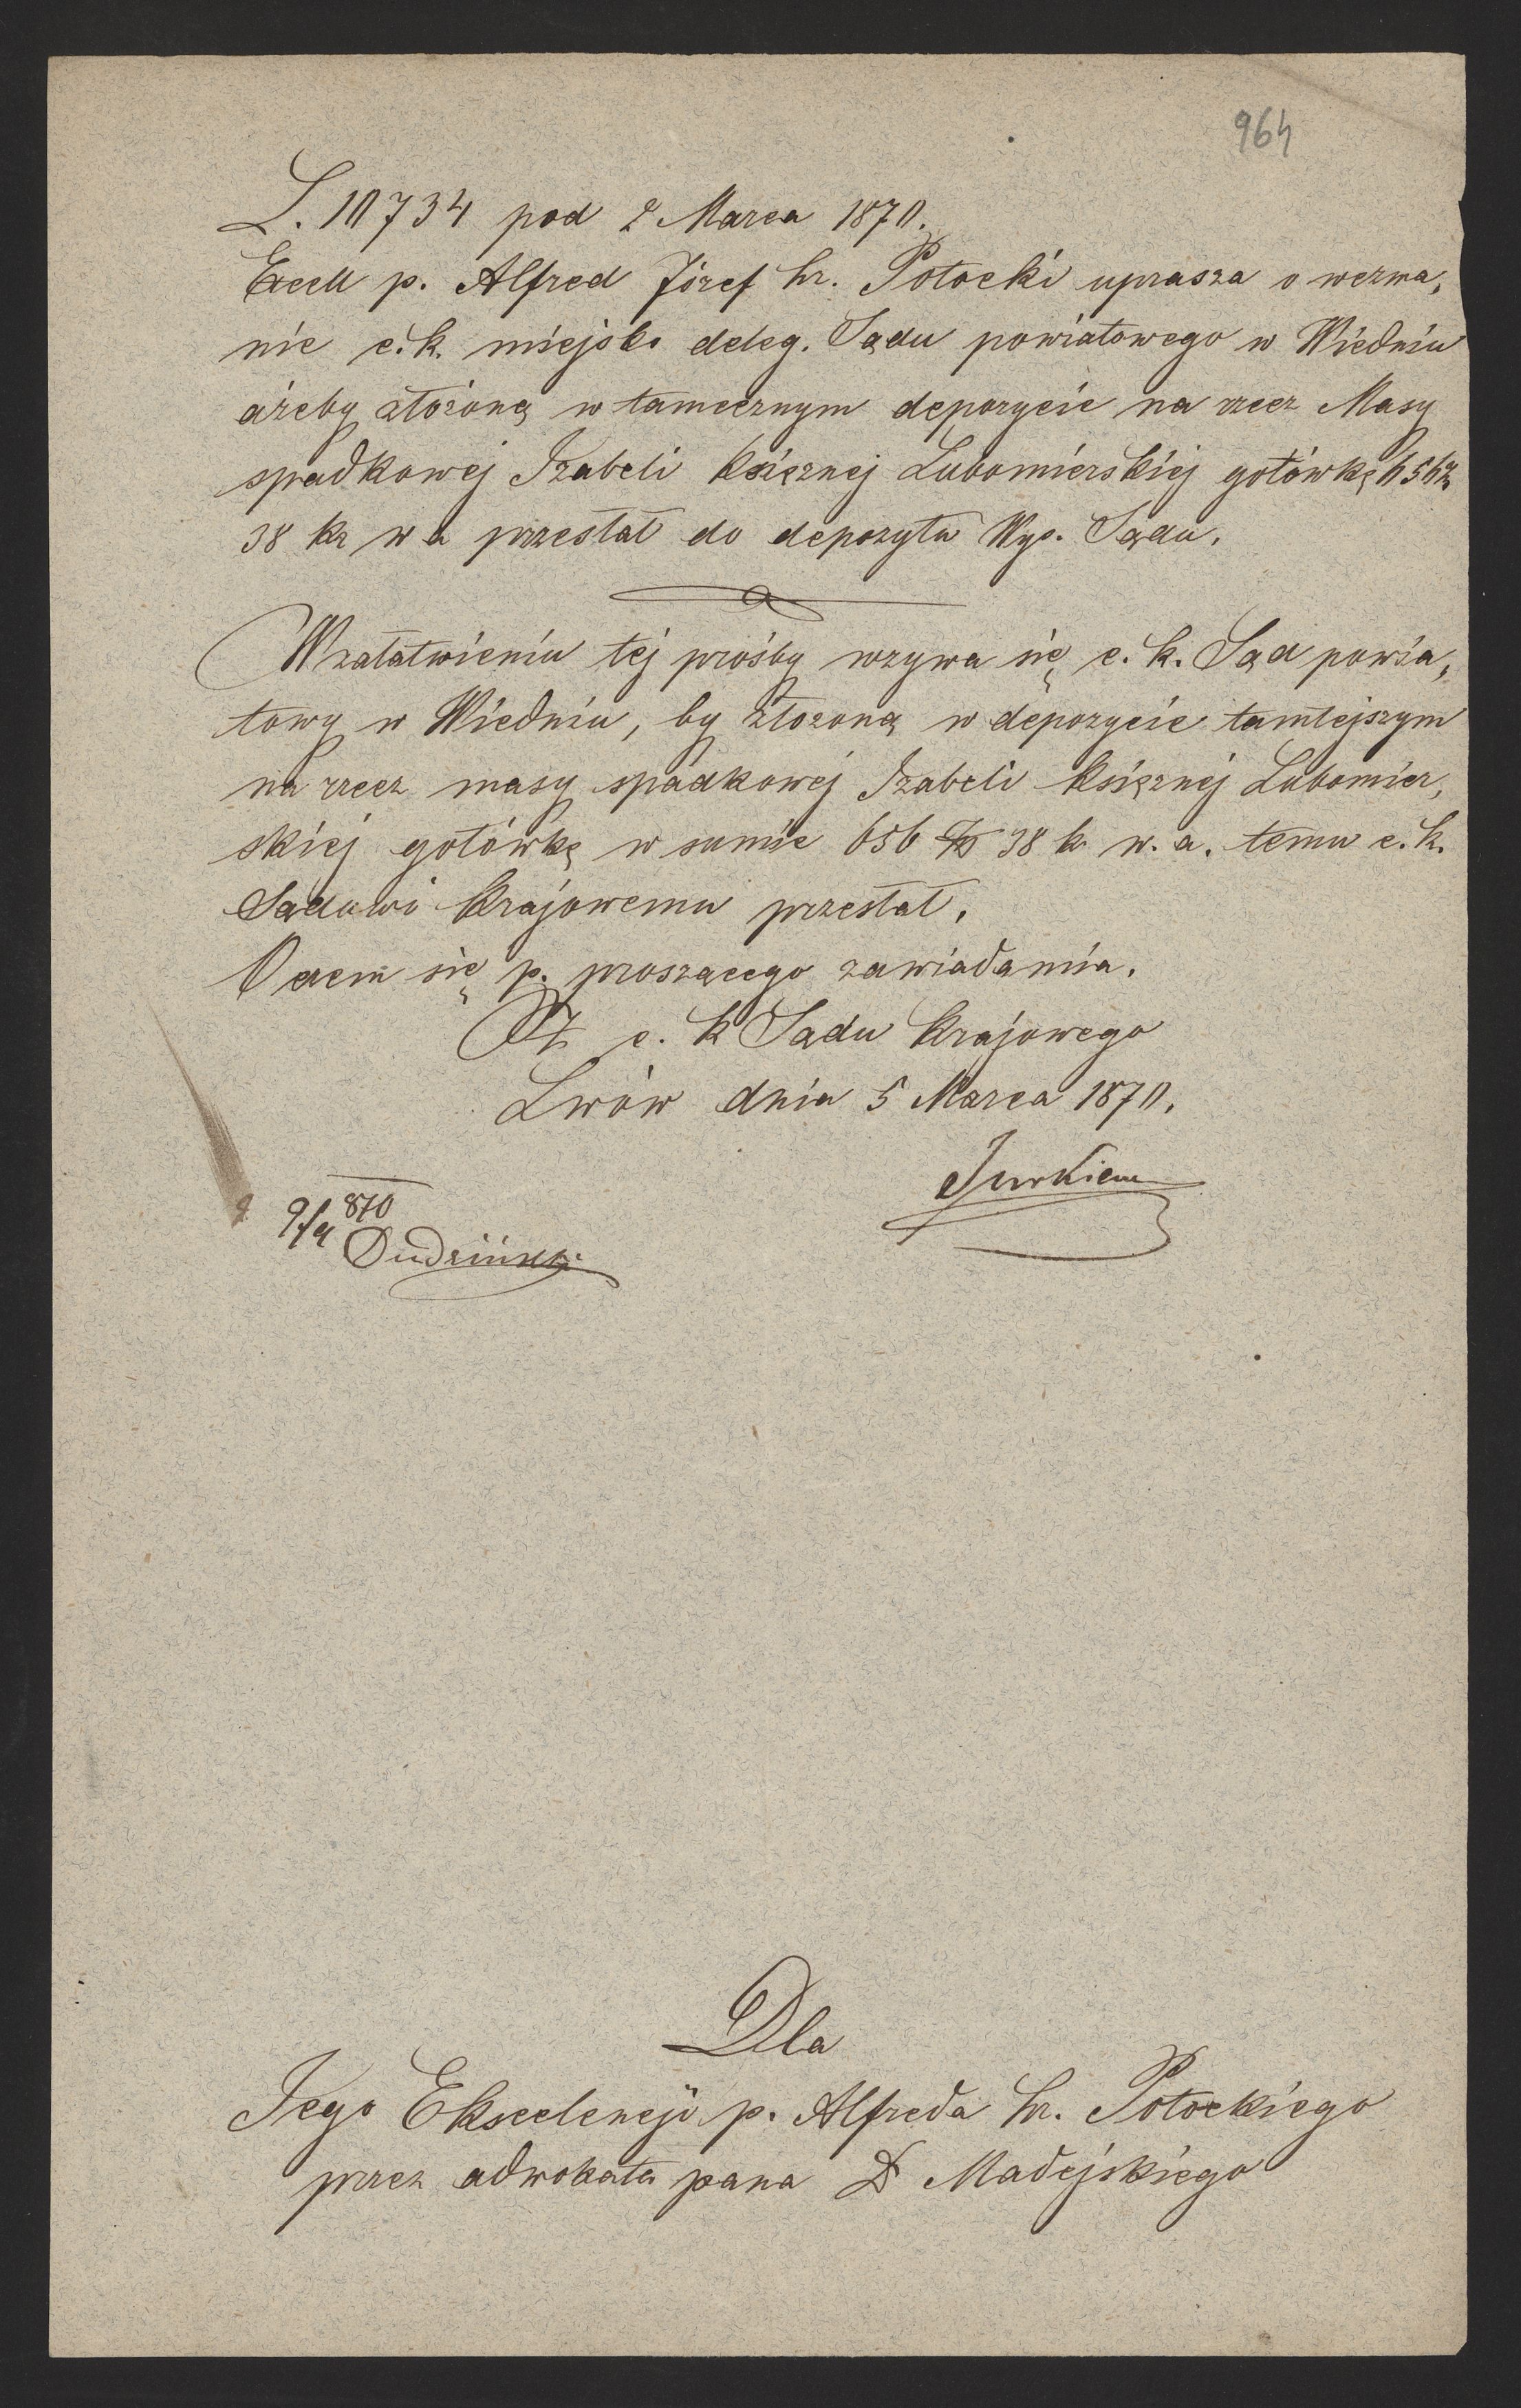 964
L. 10734 pod 2 Marca 1870.
Excell p. Alfred Józef hr. Potocki uprasza o wezwa„
nie c. k. miejsko deleg. Sądu powiatowego w Wiedniu
ażeby złożoną w tamecznym depozycie na rzecz Masy
spadkowej Izabeli księznej Lubomierskiej gotówkę 656 zł
38 kr w a przesłał do depozytu Wys. Sądu.
W załatwieniu tej prośby wzywa się c. k. Sąd powia„
towy w Wiedniu, by złozoną w depozycie tamtejszym
na rzecz masy spadkowej Izabeli księznej Lubomier„
skiej gotówkę w sumie 656 zł 38 k w. a. temu c. k.
Sądowi krajowemu przesłał.
O czem się p. proszącego zawiadamia.
Z c. k Sądu krajowego
Lwów dnia 5 Marca 1870.
9/4 870
Dudziński
Dla
Jego Ekscelencji p. Alfreda hr. Potockiego
przez adwokata pana Dr Madejskiego